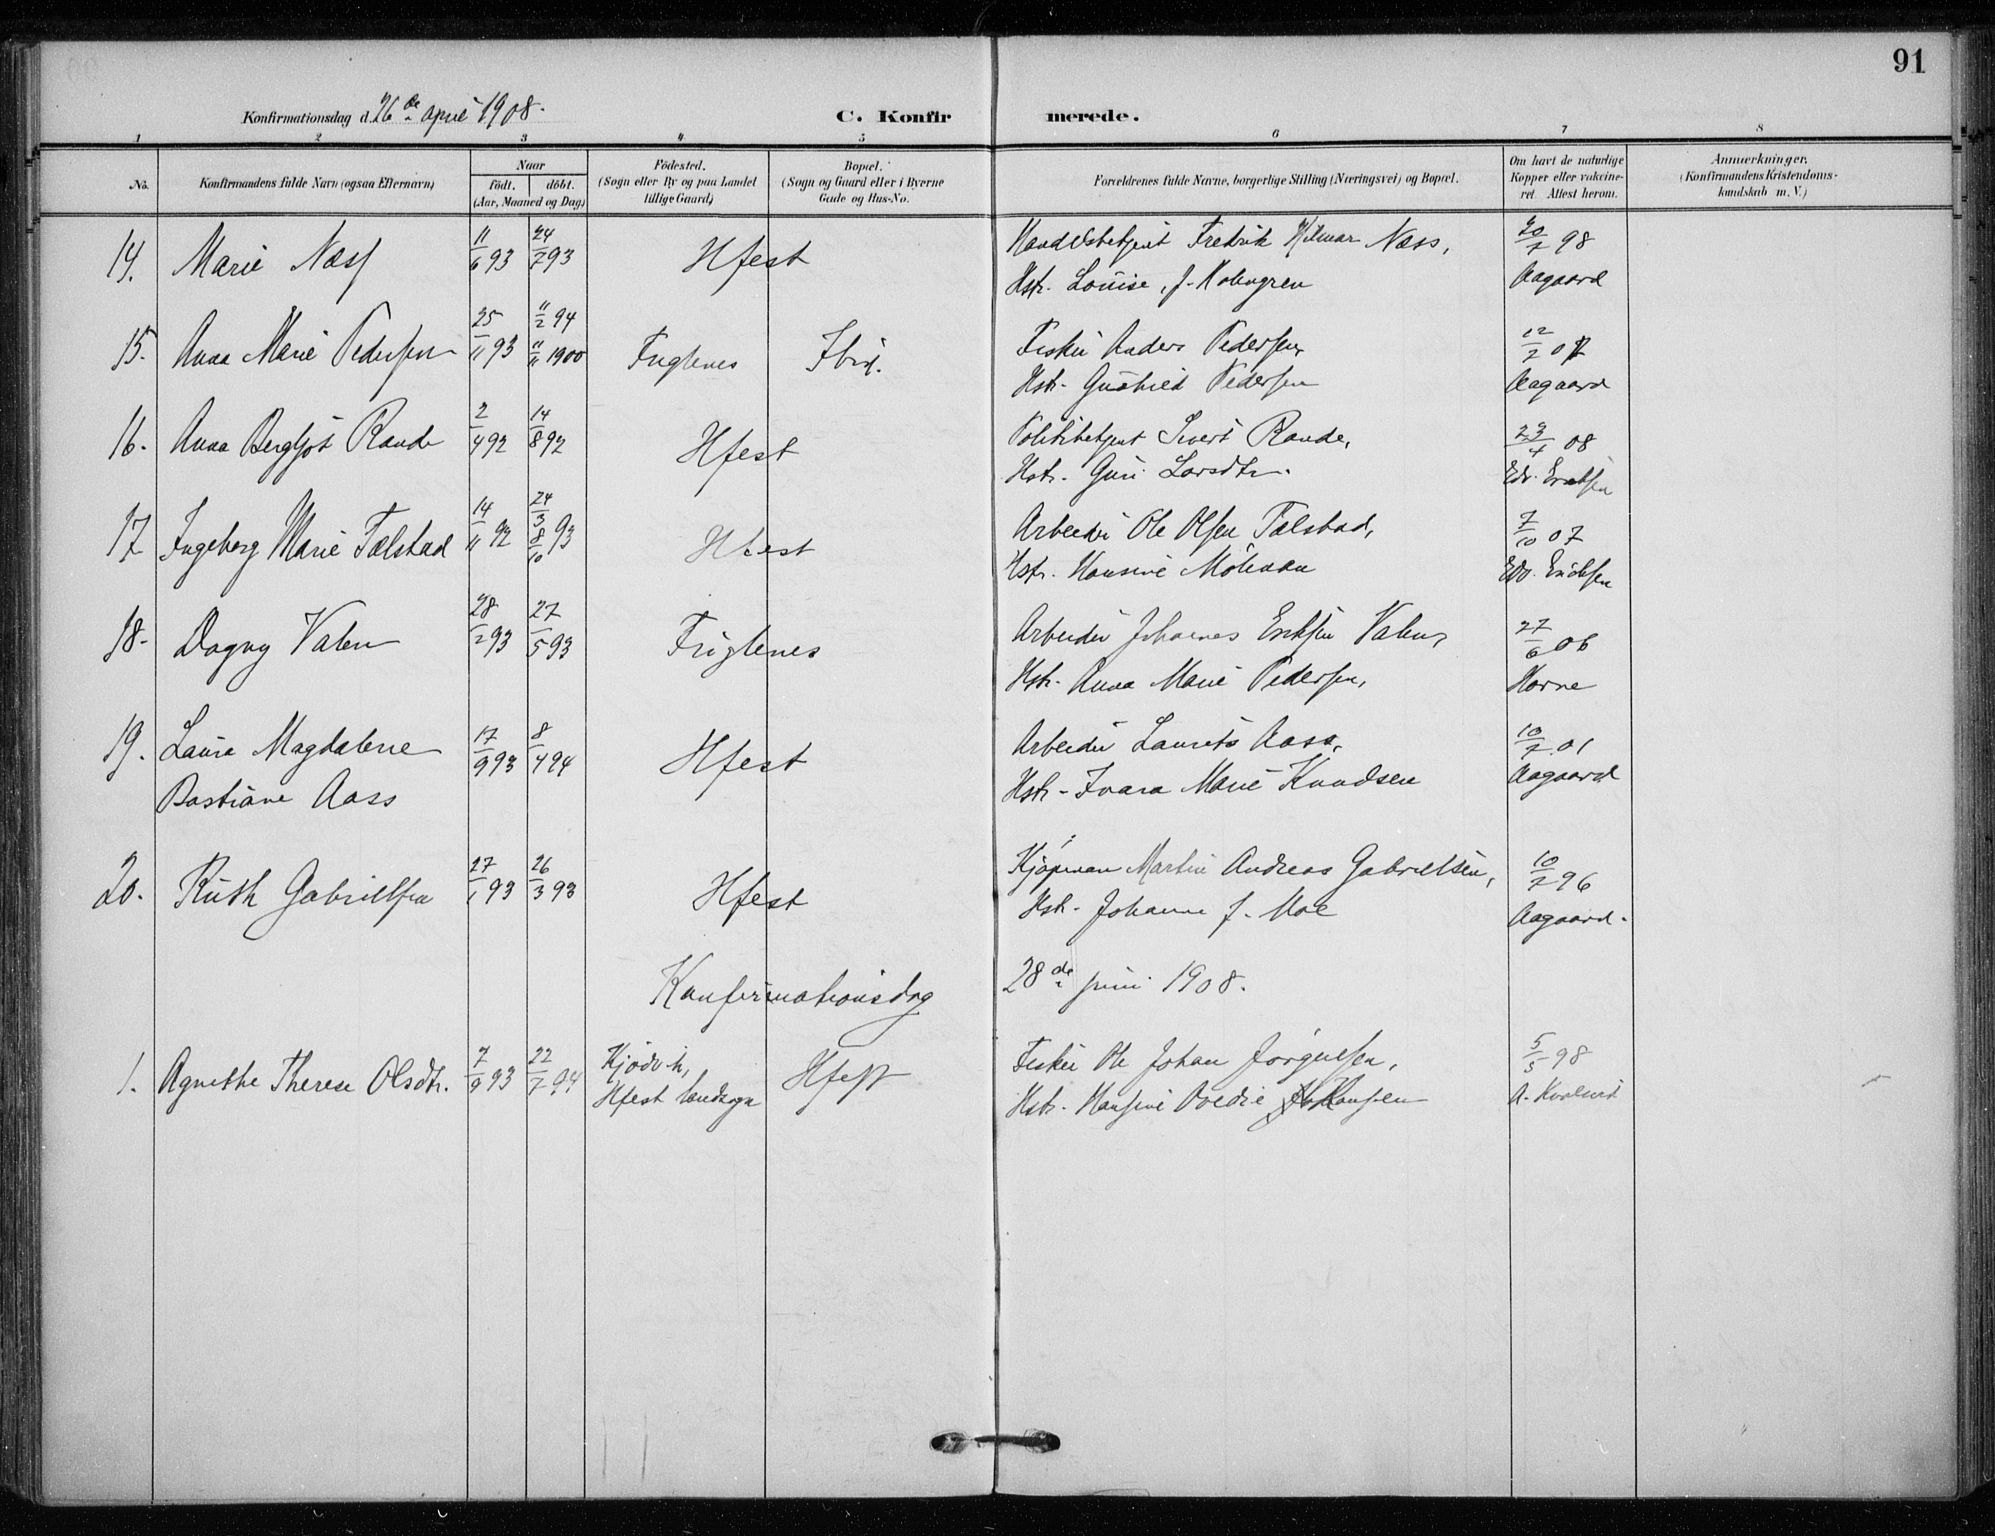 91
Konfirmationsdag d. 26de april 1908.
C. Konfirmerede.
1 2 3 4 5 6 7 8
No.
Konfirmandens fulde Navn (ogsaa Efternavn)
Naar
födt. döbt.
(Aar, Maaned og Dag)
Födested.
(Sogn eller By og paa Landet
tillige Gaard)
Bopæl.
(Sogn og Gaard eller i Byerne
Gade og Hus-No.
Forældrenes fulde Navne, borgerlige Stilling (Næringsvei) og Bopæl.
Om havt de naturlige
Kopper eller vakcine-
ret. Attest herom.
Anmærkninger.
(Konfirmandens Kristendoms-
kundskab m. V.)
14. Marie Næss 11/6 93 24/7 93 Hfest Handelsbetjent Fredrik Hilmar Næss, 20/7 98
Hstr. Louise, f. Holmgren Aagaard
15. Anna Marie Pedersen 25/11 93 11/2 94 11/11 1900 Fuglenes Ibid. Fisker Anders Pedersen, 12/7 07
Hstr. Pedersen Aagaard
16. Anna Bergljot Rande 2/4 92 14/8 92 Hfest Politibetjent Sivert Rande, 23/4 08
Hstr. Guri Larsdtr. Edv. Eriksen
17 Ingeborg Marie Tælstad 14/11 92 24/3 8/10 93 Hfest Arbeider Ole Olsen Tælstad, 7/10 07
Hstr. Hansine Möhnan Edv. Eriksen
18. Dagny Valen 28/2 93 27/5 93 Fuglenes Arbeider Johannes Eriksen Valen, 27/6 06
Hstr. Anna Marie Pedersen, Horne
19. Laura Magdalene 17/9 93 8/4 94 Hfest Arbeider Laurits Aass, 10/7 01
Bastiane Aass Hstr. Ivara Marie Knudsen Aagaard
20. Ruth Gabrielsen 27/1 93 26/3 93 Hfest Kjöpman Martin Andreas Gabrielsen, 10/7 96
Hstr. Johanne f. Moe Aagaard.
Konfirmationsdag 28de juni 1908.
1. Agnethe Therese Olsdtr. 7/9 93 22/7 94 Kjödvik, Hfest Fisker Ole Johan Jörgensen, 5/5 98
Hfest landsogn Hstr. Hansine Ovedie Hansen A. Kvalvik